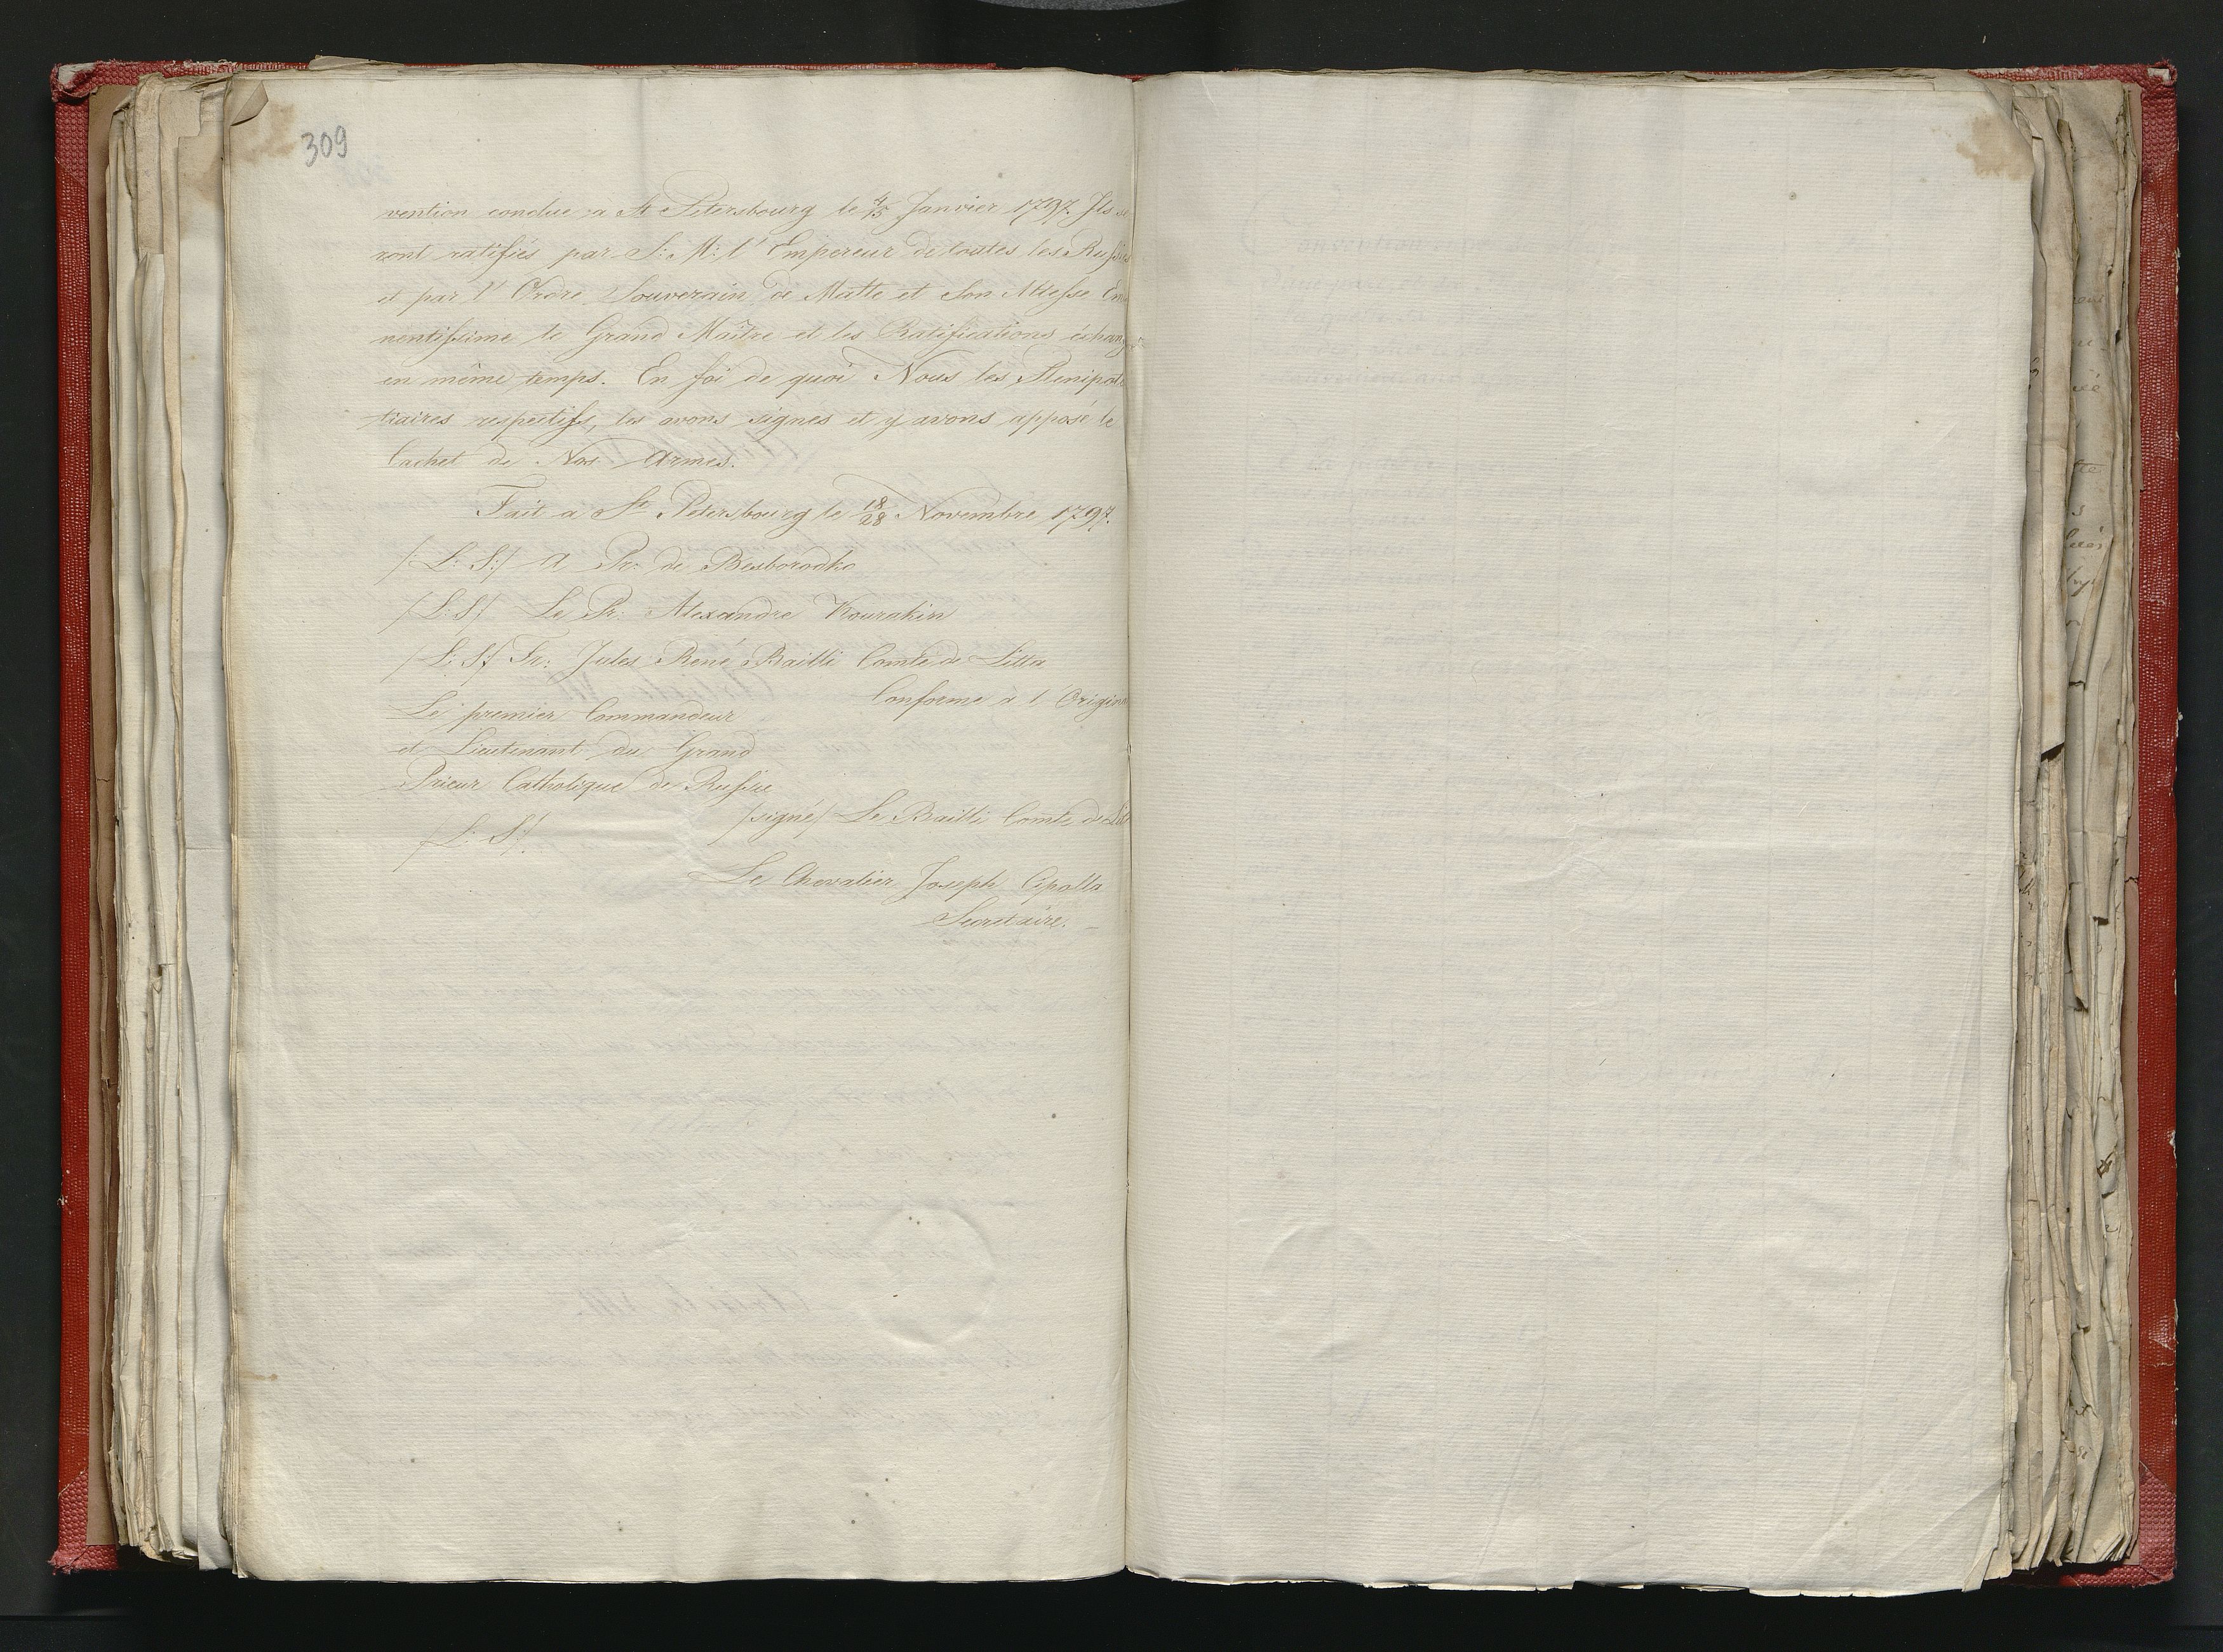 309
vention conclue a St Petersbourg le 4/15 Janvier 1797. Ils se
ront ratifiés par S: M: l'Empereur de toutes les Russies
et par l'Ordre Souverain de Malte et Son Altesse Emi
nentissime le Grand Maître et les Ratifications échang
en même temps. En foi de quoi Nous les Plenipote
tiaires respectifs, les avons signes et y avons apposé le
Cachet de Nos Armes.
Fait a St Petersbourg le 18/28 Novembre 1797.
/L: S:/ A Pr: de Besborodko
/L: S/ Le Pr: Alexandre Kourakin
/L: S/ Fr: Jules René Bailli Comte de Litta
Conforme à l'Origin
Le premier Commandeur
et Lieutenant du Grand
Prieur Catholique de Russie
/signé/ Le Bailli Comte de Litt
/L: S:/
Le Chevalier Joseph Cipolla
Secretaire.